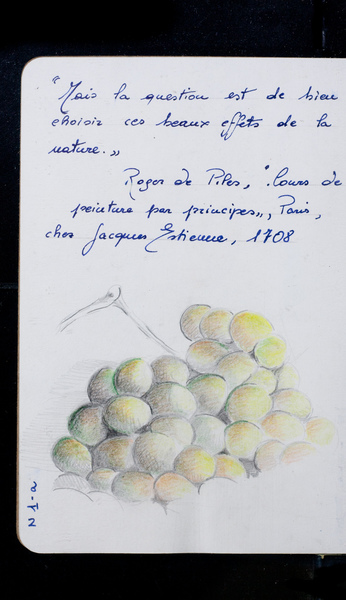 "Mais la question est de bien
choisir ces beaux effets de la
nature.„
Roger de Piles, "Cours de
peinture par principes„, Paris,
chez Jacques Estienne, 1708
N 1-a